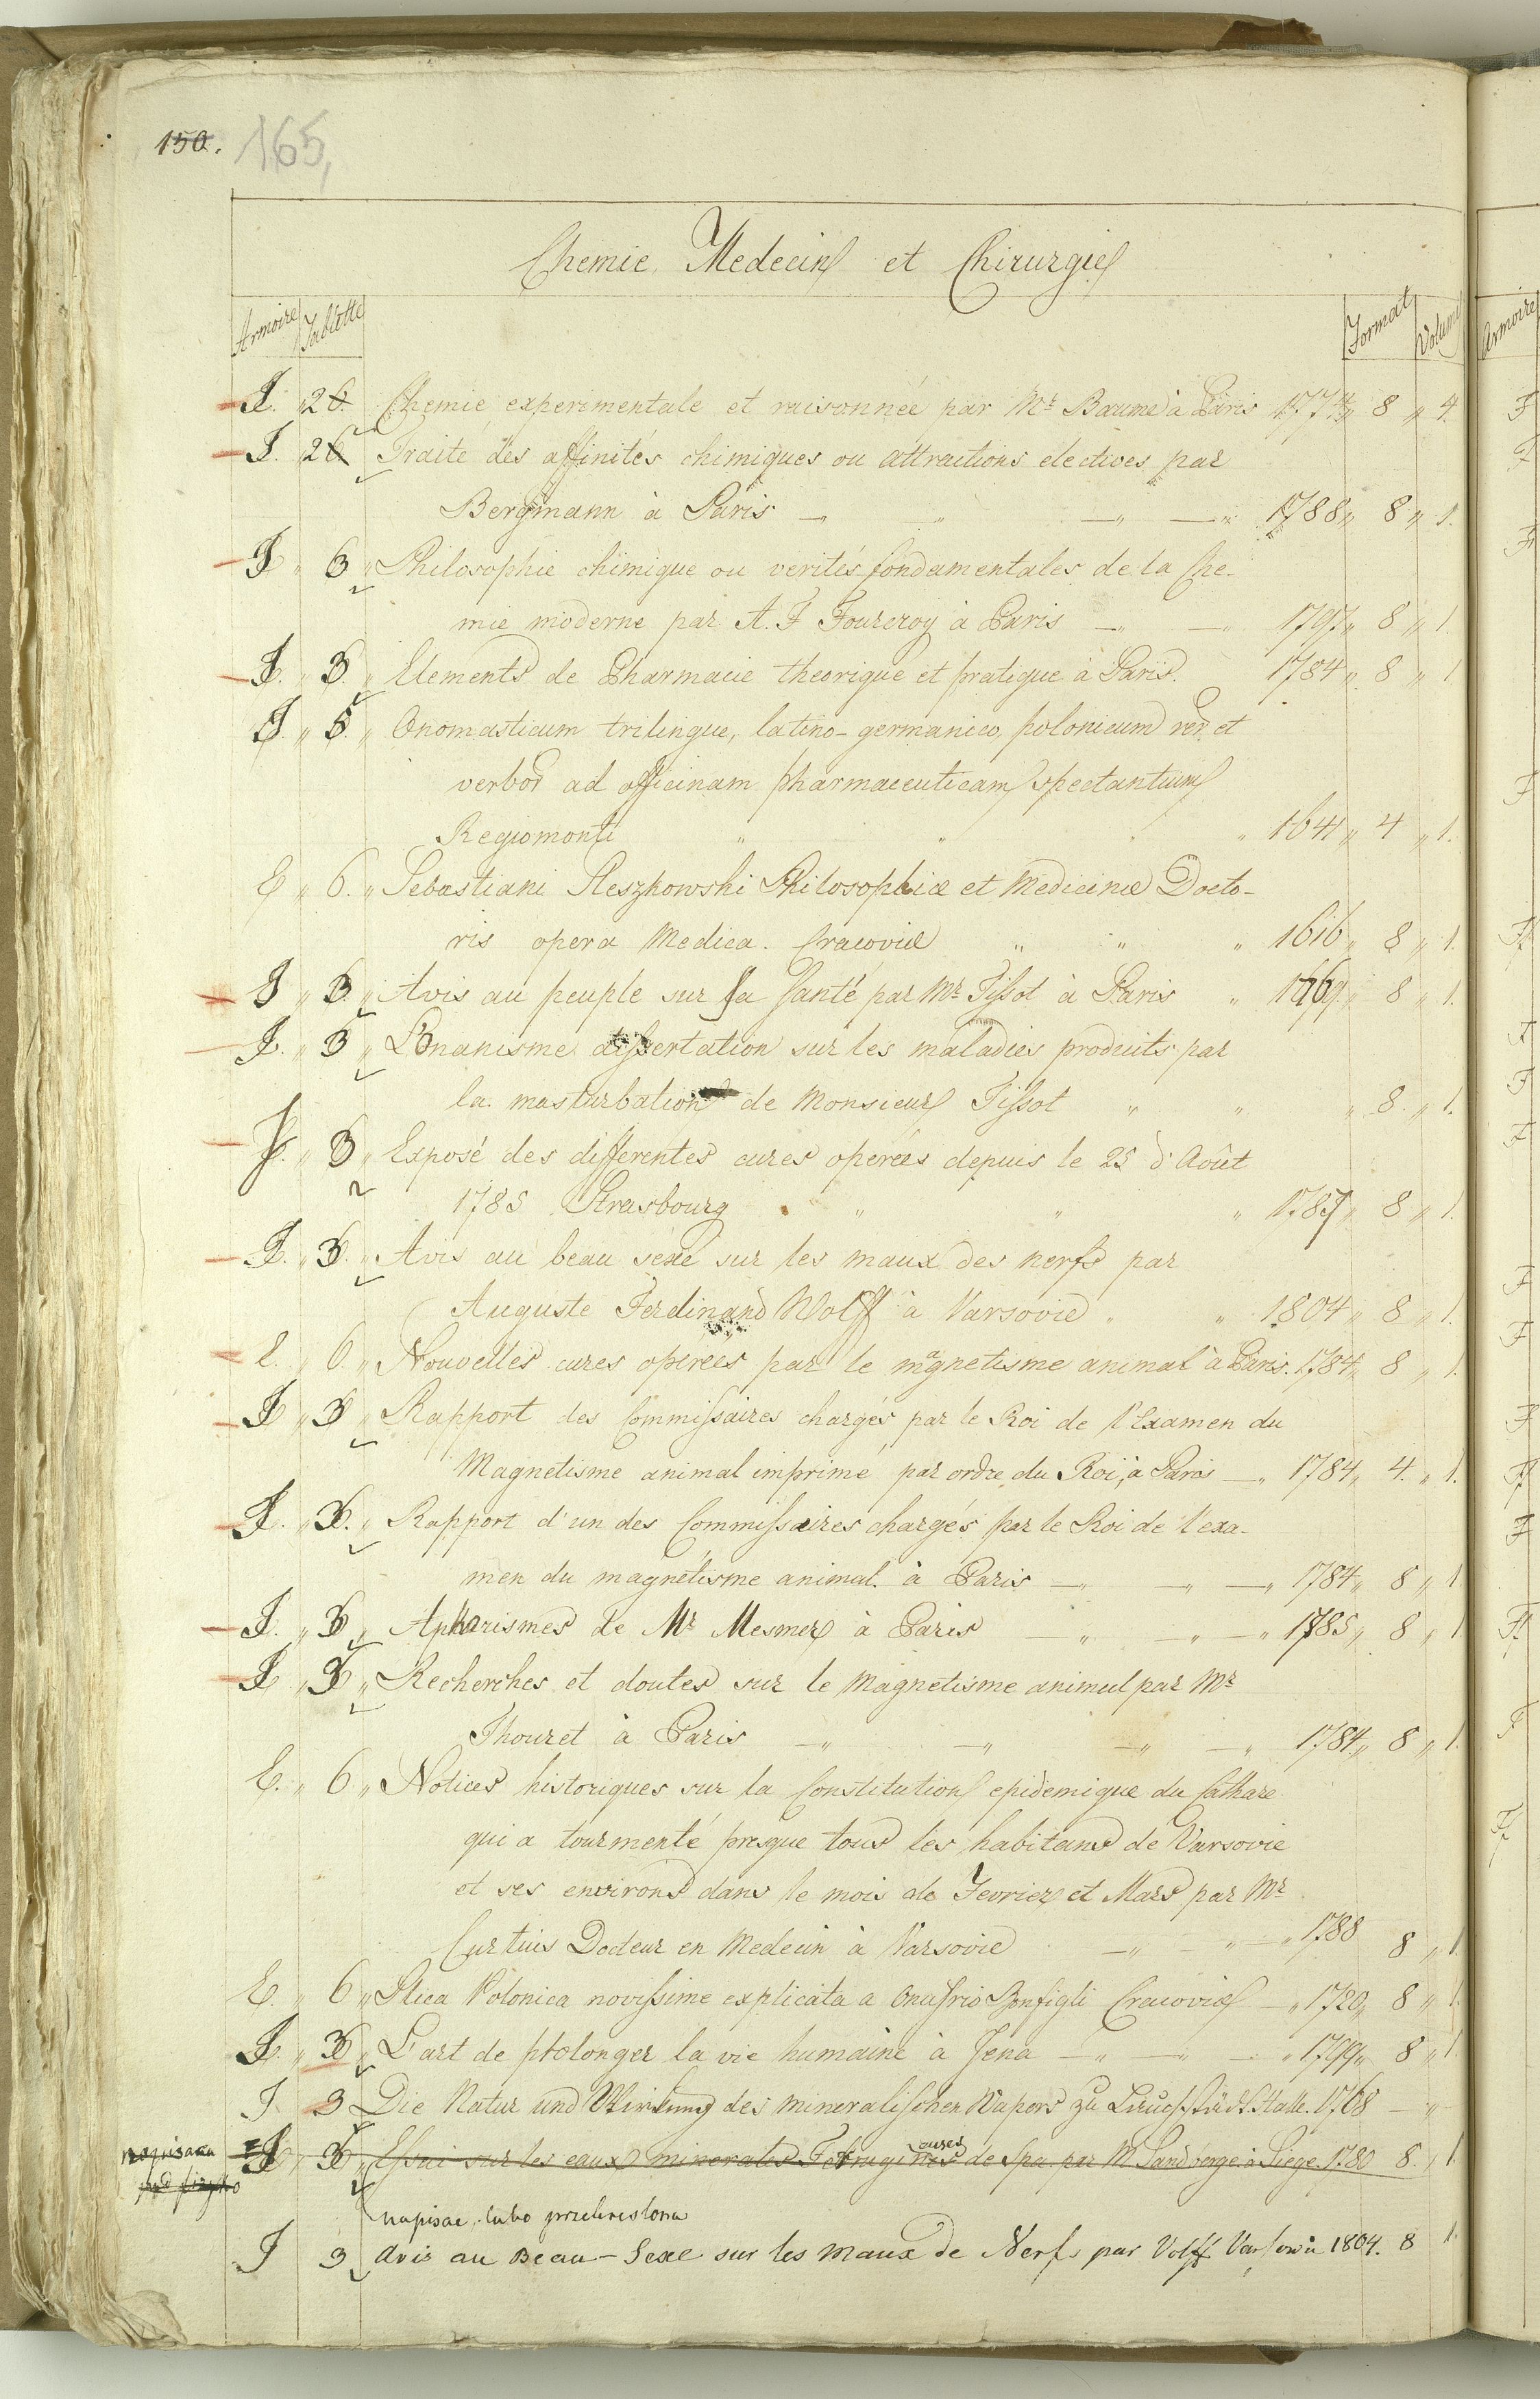 150. 165,
Chemie, Medecine et Chirurgie
Armoire Tablette Format Volume
J. 26. Chemie experimentale et raisonnée par Mr Baume à Paris 1774 „ 8 „ 4.
J. 26 Traite des affinités chimiques ou attractions electives par
Bergmann à Paris — „ — „ — „ 1788 „ 8 „ 1.
J „ 3 „ Philosophie chimique ou verités fondamentales de la Che-
mie moderne par A. F Fourcroy à Paris — „ — „ 1797 „ 8 „ 1.
J. „ 3. „ Elements de Pharmacie theorique et pratique à Paris. 1784 „ 8 „ 1
J. „ 3. „ Onomasticum trilingue, latino-germanico, polonicum rer. et
verbor ad officinam pharmaceuticam spectantium
Regiomonti „ „ „ 1641 „ 4 „ 1.
E „ 6. „ Sebastiani Sleszkowski Philosophiæ et Medicinæ Docto-
ris opera Medica. Cracoviæ „ „ „ 1616 „ 8 „ 1.
J „ 3. „ Avis au peuple sur sa santé par Mr Tissot à Paris „ 1769 „ 8 „ 1.
J. „ 3 „ L'Onanisme dissertation sur les maladies produits par
la masturbation de Monsieur Tissot „ „ „ 8. „ 1.
J. „ 3 „ Exposé des differentes cures operées depuis le 25 d'Août
1785 Strasbourg „ „ „ 1787 „ 8 „ 1.
J. „ 3. „ Avis au beau sexe sur les maux des nerfs par
Auguste Ferdinand Wolff à Varsovie „ „ 1804 „ 8 „ 1.
E. „ 6. „ Nouvelles cures operées par le magnetisme animal à Paris. 1784 „ 8 „ 1.
J „ 3 „ Rapport des Commissaires chargés par le Roi de l'Examen du
Magnetisme animal imprimé par ordre du Roi, à Paris — „ 1784 „ 4. „ 1.
J. „ 3. „ Rapport d'un des Commissaires chargés par le Roi de l'exa-
men du magnetisme animal. à Paris — „ — „ — „ 1784 „ 8 „ 1
J. „ 3 „ Aphorismes de Mr Mesmer à Paris — „ — „ — „ 1785 „ 8 „ 1
J „ 3 „ Recherches et doutes sur le magnetisme animal par Mr
Thouret à Paris — „ — „ — „ — „ 1784 „ 8 „ 1.
E. „ 6 „ Notices historiques sur la Constitution epidemique du Cathare
qui a tourmenté presque tous les habitans de Varsovie
et ses environs dans le mois de Fevrier et Mars par Mr
Curtius Docteur en Medecin à Varsovie — „ — „ — „ 1788 8 „ 1.
E. „ 6 „ Plica Polonica novissime explicata a Onufrio Bonfigli Cracoviæ — „ 1720 „ 8 „ 1.
J. „ 3 „ L'art de prolonger la vie humaine à Jena — „ — „ — „ 1799 „ 8 „ 1
J. 3 Die Natur und Wirkung des mineralischen Wassers zu Lauchstädt. Halle. 1768 — „
napisana J „ 3 „ Essai sur les eaux minerales Ferrugineuses de Spa par M Sandberge à Liege. 1780 8. „ 1.
napisac, lubo przekreslona
J 3 Avis au Beau-Sexe sur les Maux de Nerfs par Volff. Varsovie 1804. 8 1